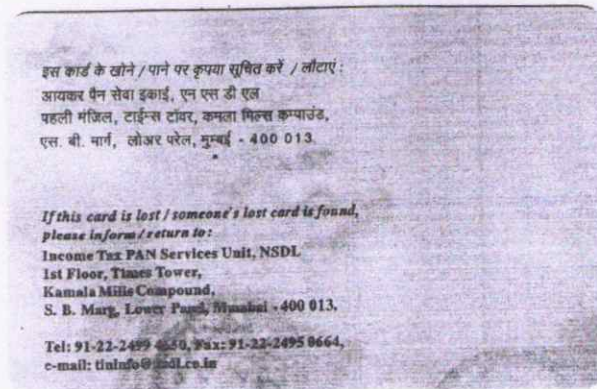 इस कार्ड के खोने / पाने पर कृपया सूचित करें / लौटाएं :
आयकर पैन सेवा इकाई, एन एस डी एल
पहली मंजिल, टाईम्स टॉवर, कमला मिल्स कम्पाउंड,
एस. बी. मार्ग, लोअर परेल, मुम्बई - 400 013.
If this card is lost / someone's lost card is found,
please inform / return to :
Income Tax PAN Services Unit, NSDL
1st Floor, Times Tower,
Kamala Mills Compound,
S. B. Marg, Lower Parel, Mumbai - 400 013.
Tel: 91-22-2499 4650, Fax: 91-22-2495 0664,
e-mail: tininfo@nsdl.co.in